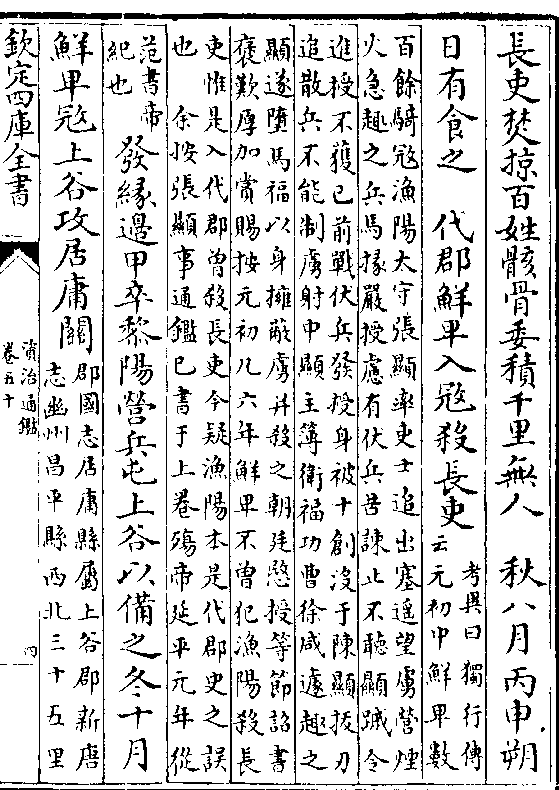 長吏焚掠百姓骸骨委積千里無人　秋八月丙申朔
日有食之　代郡鮮卑入冦殺長吏
考異曰獨行傳
云元初中鮮卑數
百餘騎冦漁陽太守張顯率吏士追出塞遥望虜營煙
火急趣之兵馬掾嚴授慮有伏兵苦諫止不聽顯蹴令
進授不獲已前戰伏兵發授身被十創沒于陳顯拔刀
追散兵不能制虜射中顯主簿衛福功曹徐咸遽趣之
顯遂墮馬福以身擁蔽虜并殺之朝廷愍授等節詔書
褒歎厚加賞賜按元初凡六年鮮卑不曾犯漁陽殺長
吏惟是入代郡曾殺長吏今疑漁陽本是代郡史之誤
也　余按張顯事通鑑已書于上卷殤帝延平元年從
范書帝
紀也
發緣邊甲卒黎陽營兵屯上谷以備之冬十月
鮮卑冦上谷攻居庸關
郡國志居庸縣屬上谷郡新唐
志幽州昌平縣西北三十五里
欽定四庫全書
資治通鑑
卷五十
四